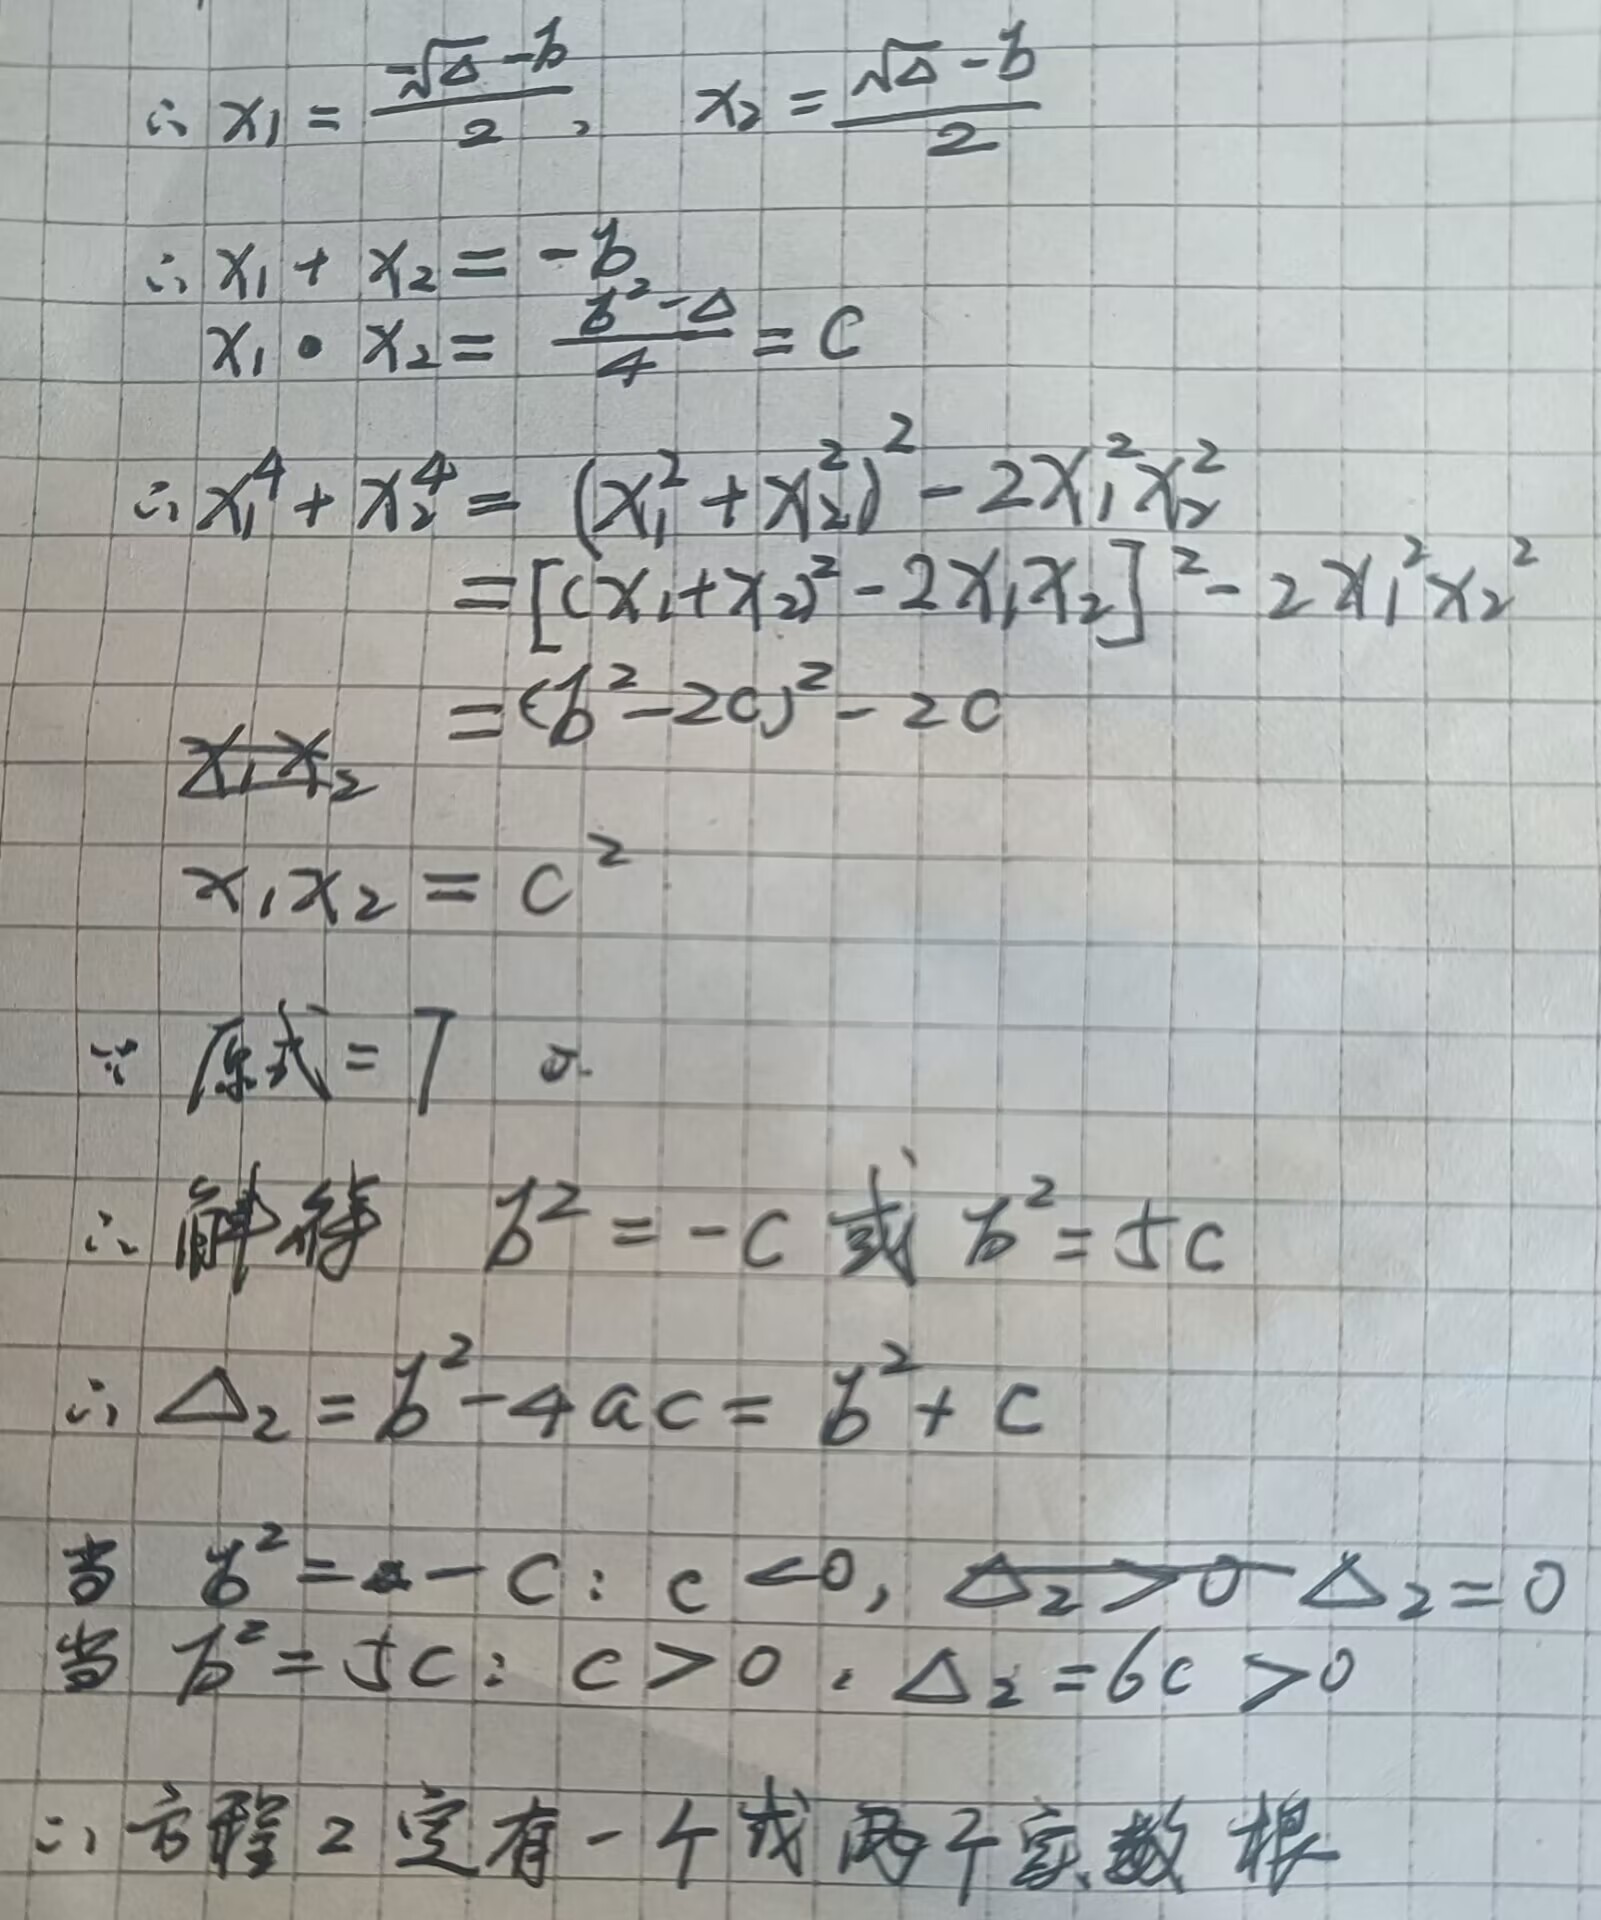 ∴ x₁ = (-√Δ - b)/2 , x₂ = (√Δ - b)/2
∴ x₁ + x₂ = -b
x₁ • x₂ = (b² - Δ)/4 = C
∴ x₁⁴ + x₂⁴ = (x₁² + x₂²)² - 2x₁²x₂²
= [(x₁+x₂)² - 2x₁x₂]² - 2x₁²x₂²
= (b² - 2c)² - 2c
x₁x₂
x₁x₂ = c²
∵ 原式 = 7
∴ 解得 b² = -c 或 b² = 5c
∴ Δ₂ = b² - 4ac = b² + c
当 b² = - c : c < 0, Δ₂ > 0 Δ₂ = 0
当 b² = 5c : c > 0 , Δ₂ = 6c > 0
∴ 方程2定有一个或两个实数根